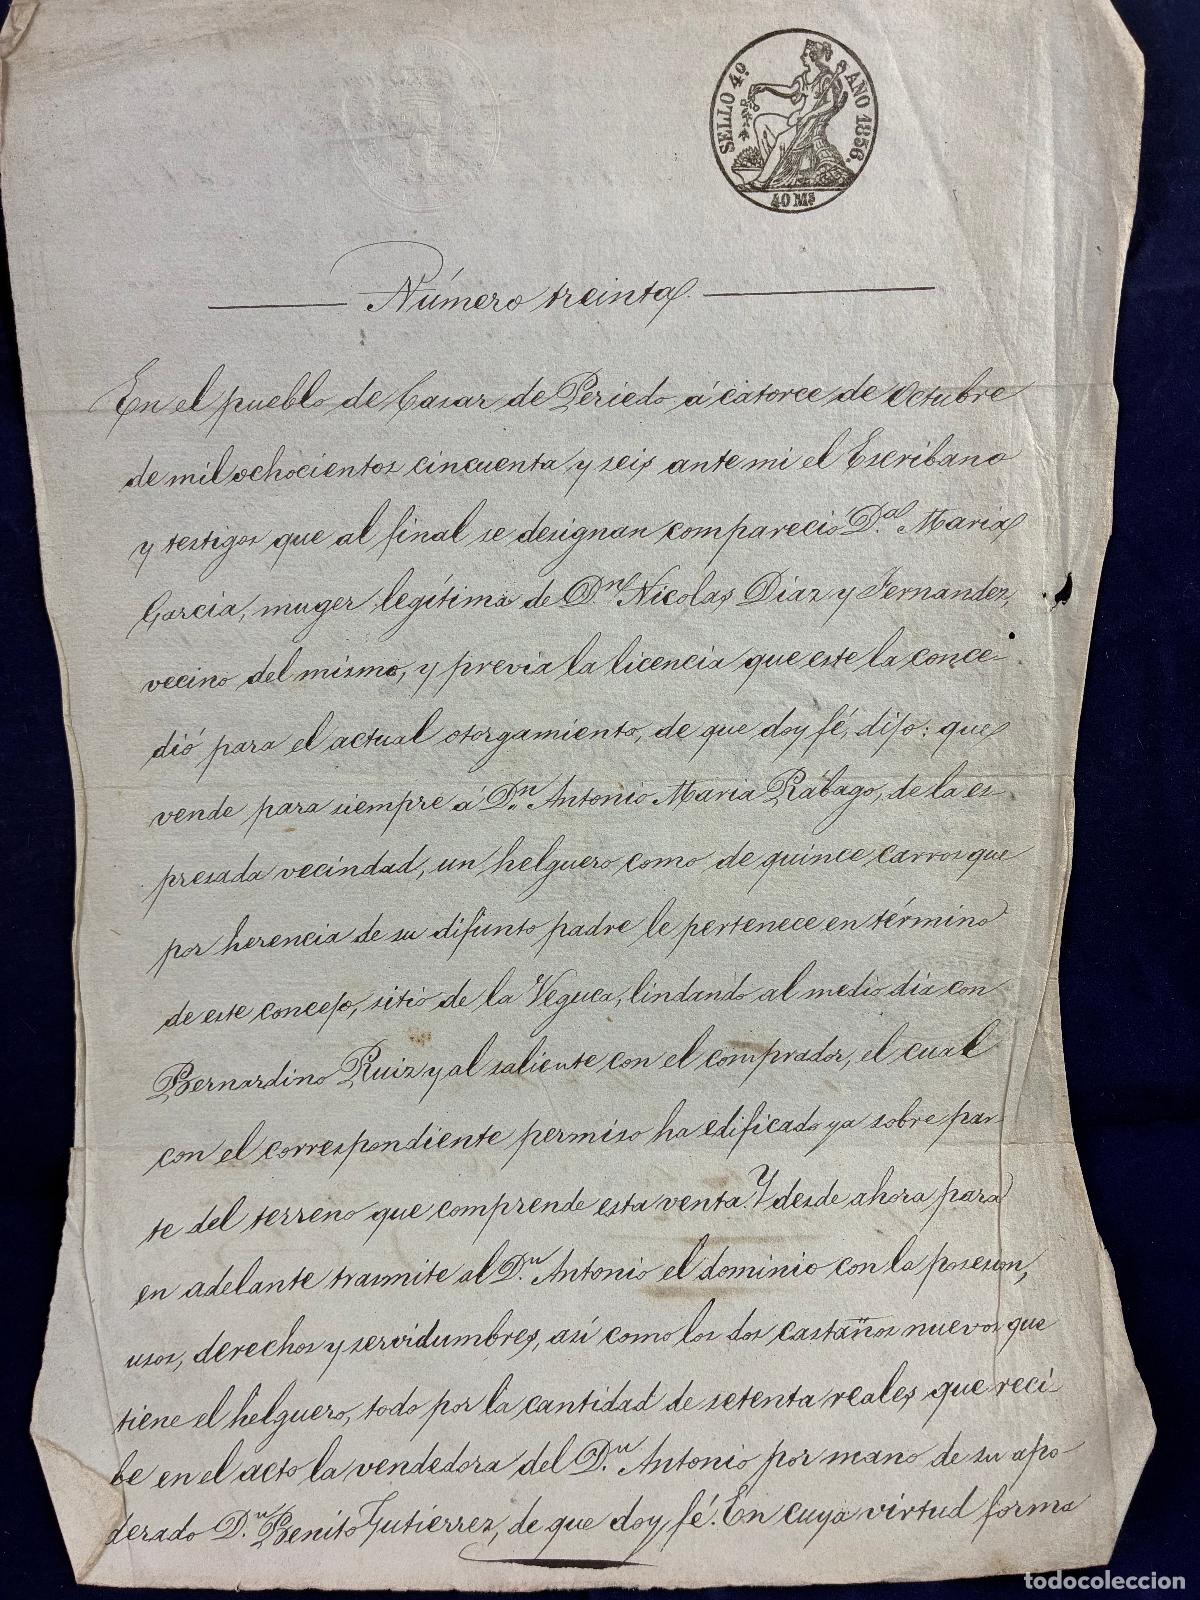 SELLO 4º AÑO 1856.
40 Mˢ
Número treinta.
En el pueblo de Casar de Periedo á catorce de Octubre
de mil ochocientos cincuenta y seis ante mi el Escribano
y testigos que al final se designan compareció D.ª Maria
Garcia, muger legítima de D.ⁿ Nicolas Díaz y Fernandez,
vecino del mismo, y previa la licencia que este la conce-
dió para el actual otorgamiento, de que doy fé, dijo: que
vende para siempre á D.ⁿ Antonio Maria Rábago, de la es-
presada vecindad, un helguero como de quince carros que
por herencia de su difunto padre le pertenece en término
de este concejo, sitio de la Vegueca, lindando al medio dia con
Bernardino Ruiz y al saliente con el comprador, el cual
con el correspondiente permiso ha edificado ya sobre par-
te del terreno que comprende esta venta. Y desde ahora para
en adelante trasmite al D.ⁿ Antonio el dominio con la posesion,
usos, derechos y servidumbres, así como los dos castaños nuevos que
tiene el helguero, todo por la cantidad de setenta reales que reci-
be en el acto la vendedora del D.ⁿ Antonio por mano de su apo-
derado D.ⁿ Benito Gutiérrez, de que doy fé. En cuya virtud forma
todocoleccion